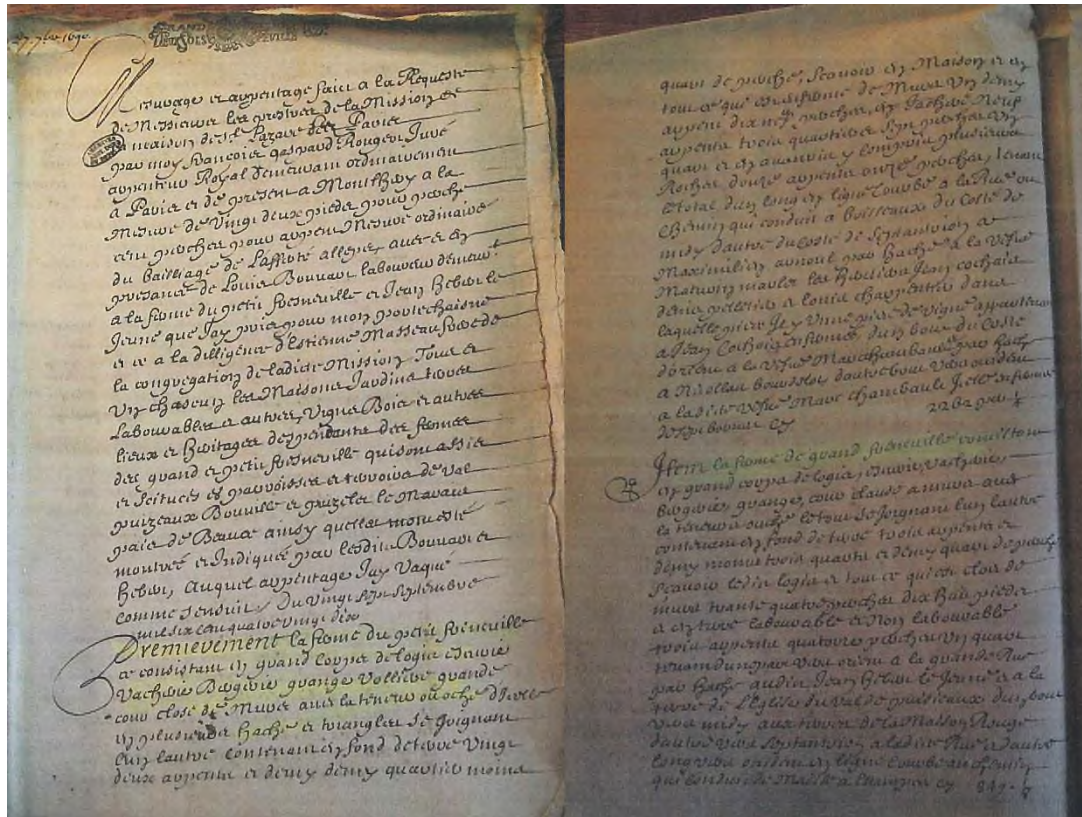 27. 7bre 1690.
GRAND
DEUX SOLS
Mesurage et arpentage faict a la Requeste
de Messieurs les prestres de la Mission de
la maison de St Lazare de Paris
par moy francois gaspard Rougeor Juré
arpenteur Royal demeurant ordinairement
a Paris et de present a Monthery a la
Mesure de Vingt deux pieds pour perche
cent perches pour arpent Mesure ordinaire
du bailliage de Lafforé allegre, avec et en
presance de Louis Bouvart laboureur demeurt
a la ferme du petit fresneville et Jean Hebert le
Jeune que Jay pris pour mon portechaisne
et ce a la dilligence d'Estienne Masseau frere de
la congregation de ladicte Mission Tous et
Un chascun les Maisons Jardins terres
Labourables et autres, Vignes Bois et autres
lieux et heritages deppendants des fermes
des grand et petit fresneville qui sont assis
et scitues es parroisses et terroirs de Val
puizeaux Bouville et puzelet le Marais
pais de Beauce ainsy quelles mont esté
montrés et Indiqués par lesdits Bouvart et
Hebert, Auquel arpentage Jay Vaqué
comme sensuit / Du vingt sept septembre
mil six cent quatre vingt dix
Premierement la ferme du petit fresneville
ce consistant en grand corps de logis escurie
Vacherie Bergerie grange Volliere grande
cour close de Murs avec la teneur ou oche d'Icelle
en plusieurs hache et triangles se Joignant
lun lautre contenant en fond de terre Vingt
deux arpents et demy demy quartier moins
quart de perche, Scavoir en Maison et en
tout ce que est enfermé de Murs Un demy
arpent dix neuf perches, en Jachere Neuf
arpents trois quartiers sept perches Un
quart et en y compris plusieurs
Rocher douze arpents onze perches, tenant
le total dun long en ligne courbe a la Rue ou
Chemin qui conduit a Boisseaux du Costé de
midy dautre du costé de septantrion a
Maximilien par hache a la Vefve
Mathurin les heritiers Jean cochain
denis pelletier et louis charpentier dans
laquelle piece Jl y a Une piece de Vigne appartenant
a Jean Cochois enfermée, dun bout du Costé
dorient a la Vefve Marc chambault par hache
a Nicollas dautre bout Vers occident
a ladite Vefve Marc chambault Jcelle
22 82 per
Jtem la ferme de grand fresneville consistant
en grand corps de logis, escurie, Vacherie,
Bergerie, grange, cour clause a murs avec
la teneure ouche le tout se Joignant lun lautre
contenant en fond de terre trois arpents et
demy moins trois quarts et demy quart de perche
Scavoir ledit logis et tout ce qui est clos de
murs trante quatre perches dix huit pieds
et en terre labourable et Non labourable
trois arpents quatorze perches Un quart
tenant dune part Vers orient a la grande Rue
par hache audit Jean Hebert le Jeune et a la
terre de L'Eglise du Val de puiseaux dun bout
Vers midy aux terres de la Maison Rouge
dautre Vers septantrion a ladite Rue et dautre
long vers occident en ligne Courbe au chemin
qui conduit de Maisse a Estampes cy 349